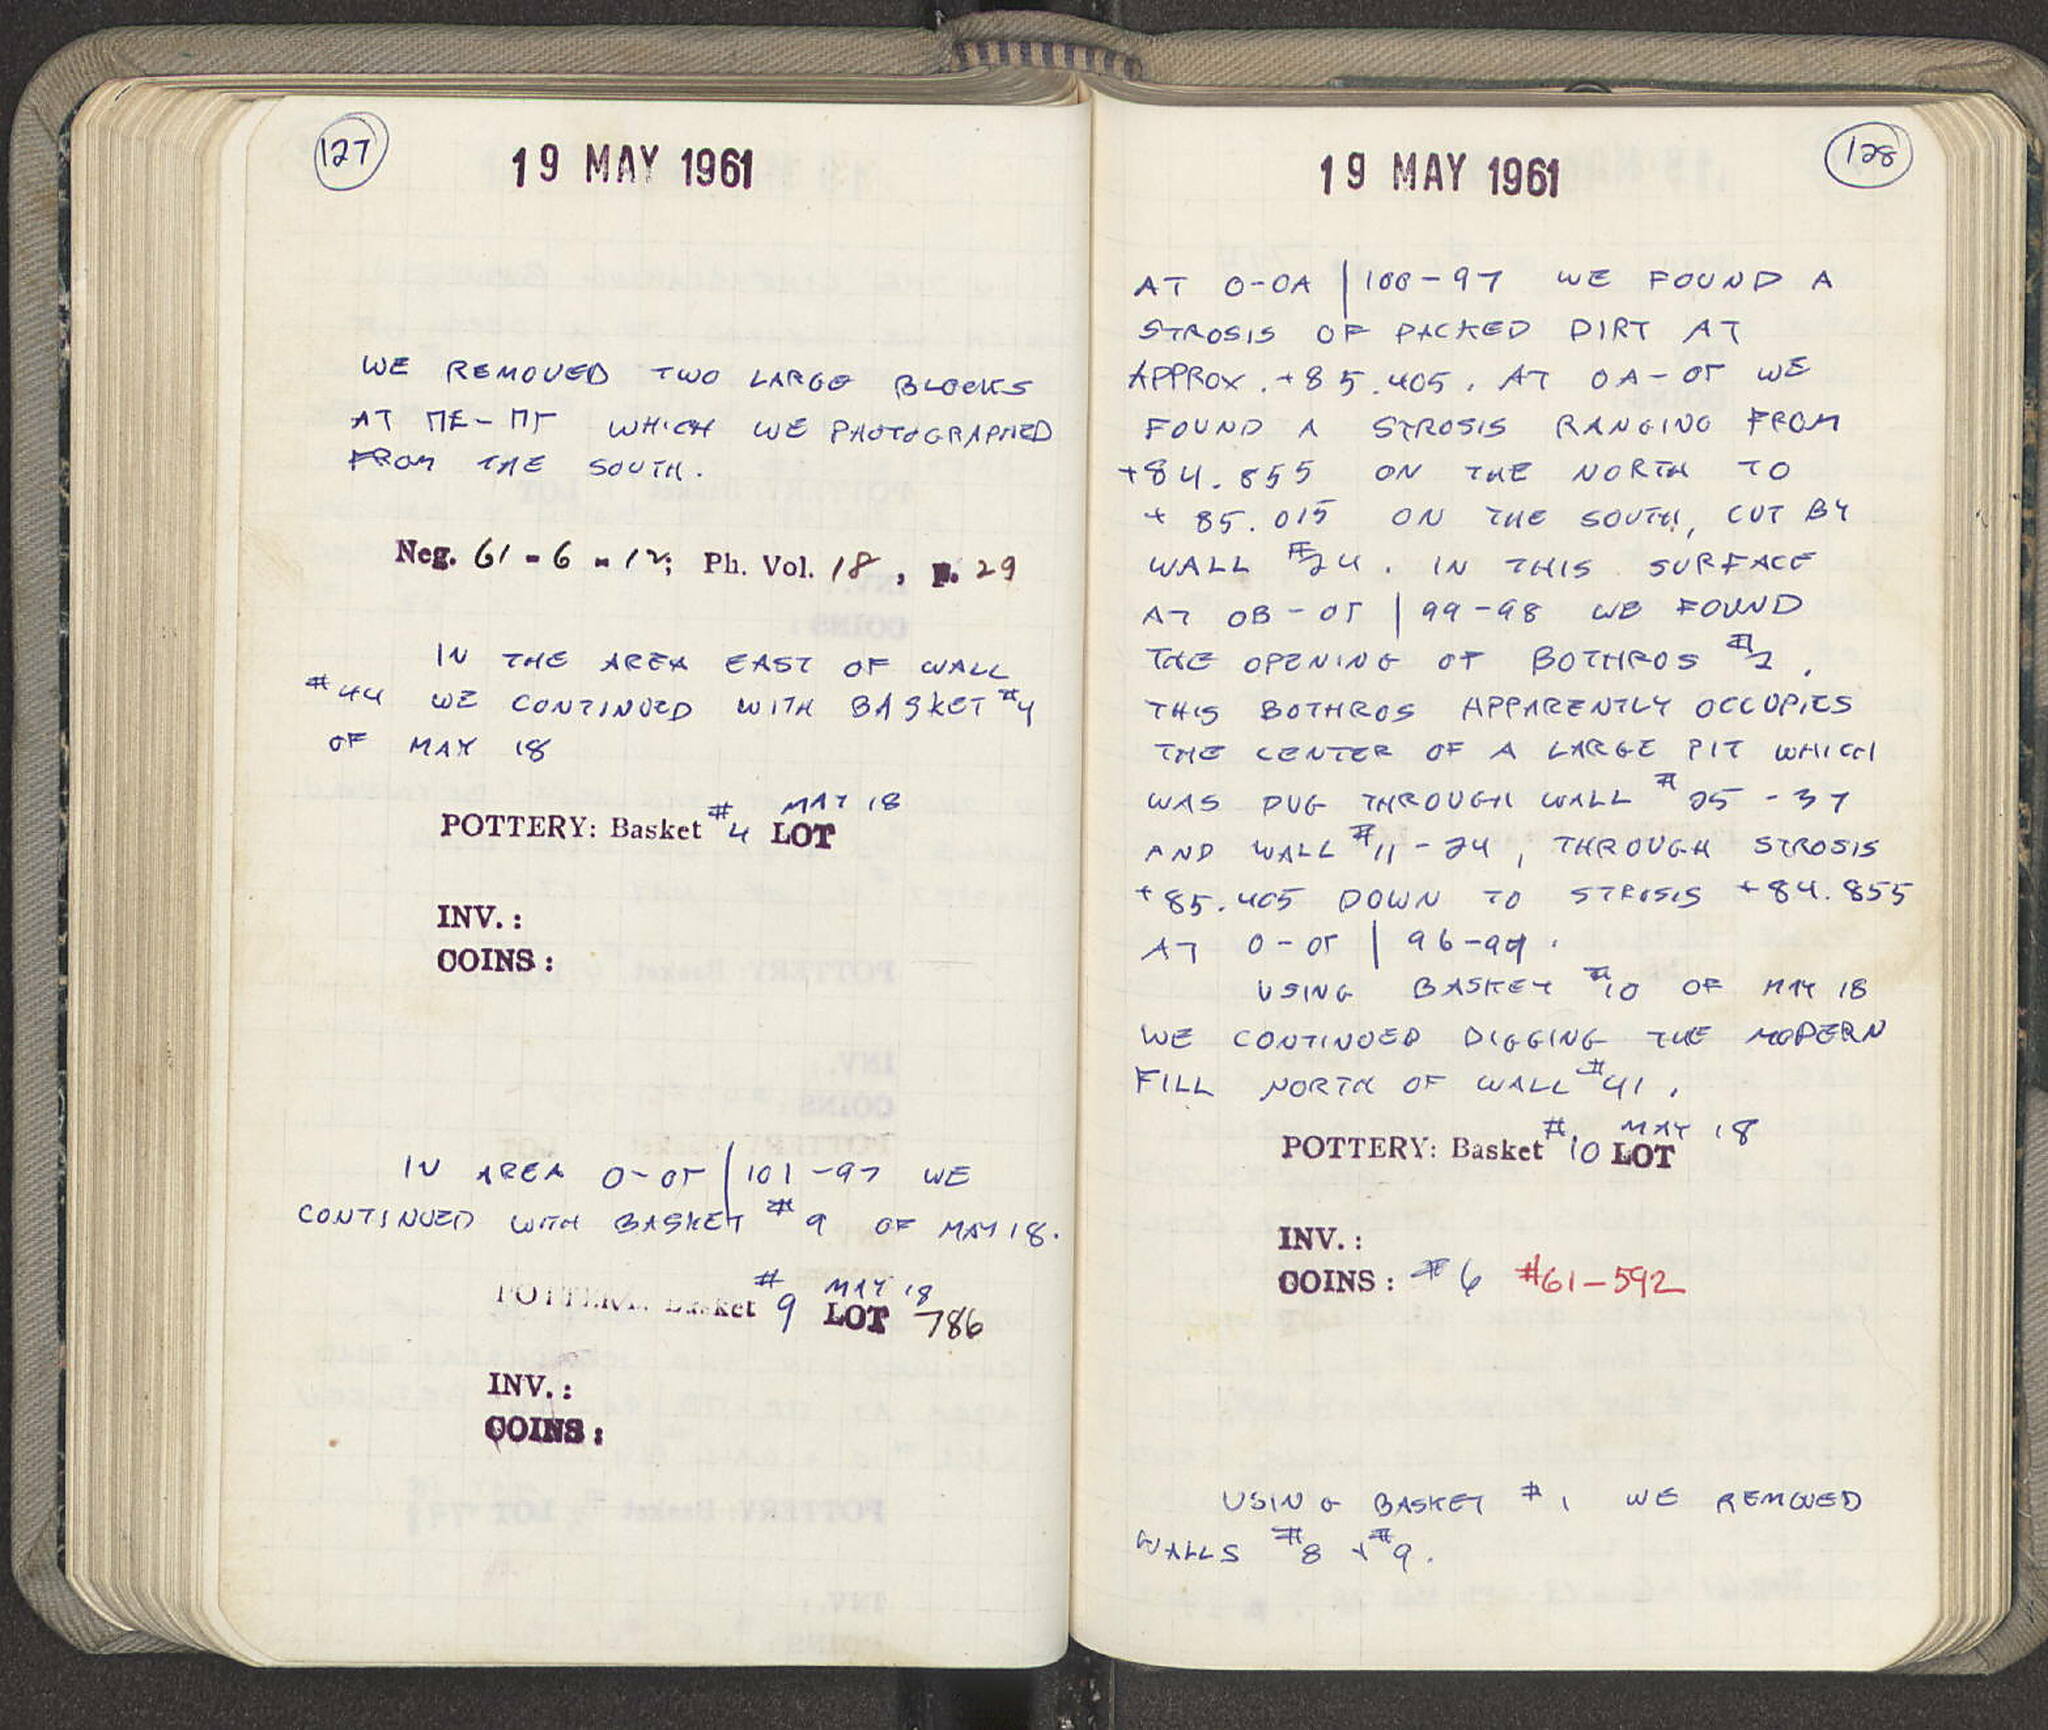 127
19 MAY 1961
WE REMOVED TWO LARGE BLOCKS
AT ΠE-ΠΓ WHICH WE PHOTOGRAPHED
FROM THE SOUTH.
Neg. 61-6-12; Ph. Vol. 18, p. 29
IN THE AREA EAST OF WALL
#44 WE CONTINUED WITH BASKET #4
OF MAY 18
MAY 18
POTTERY: Basket #4 LOT
INV.:
COINS:
IN AREA O-OΓ | 101-97 WE
CONTINUED WITH BASKET #9 OF MAY 18.
MAY 18
POTTERY: Basket #9 LOT 786
INV.:
COINS:
128
19 MAY 1961
AT O-OA | 100-97 WE FOUND A
STROSIS OF PACKED DIRT AT
APPROX. +85.405. AT OA-OΓ WE
FOUND A STROSIS RANGING FROM
+84.855 ON THE NORTH TO
+85.015 ON THE SOUTH, CUT BY
WALL #24. IN THIS SURFACE
AT OB-OΓ | 99-98 WE FOUND
THE OPENING OF BOTHROS #2.
THIS BOTHROS APPARENTLY OCCUPIES
THE CENTER OF A LARGE PIT WHICH
WAS DUG THROUGH WALL #25-37
AND WALL #11-24, THROUGH STROSIS
+85.405 DOWN TO STROSIS +84.855
AT O-OΓ |
USING BASKET #10 OF MAY 18
WE CONTINUED DIGGING THE MODERN
FILL NORTH OF WALL #41.
MAY 18
POTTERY: Basket #10 LOT
INV.:
COINS: #6 #61-592
USING BASKET #1 WE REMOVED
WALLS #8 + #9.